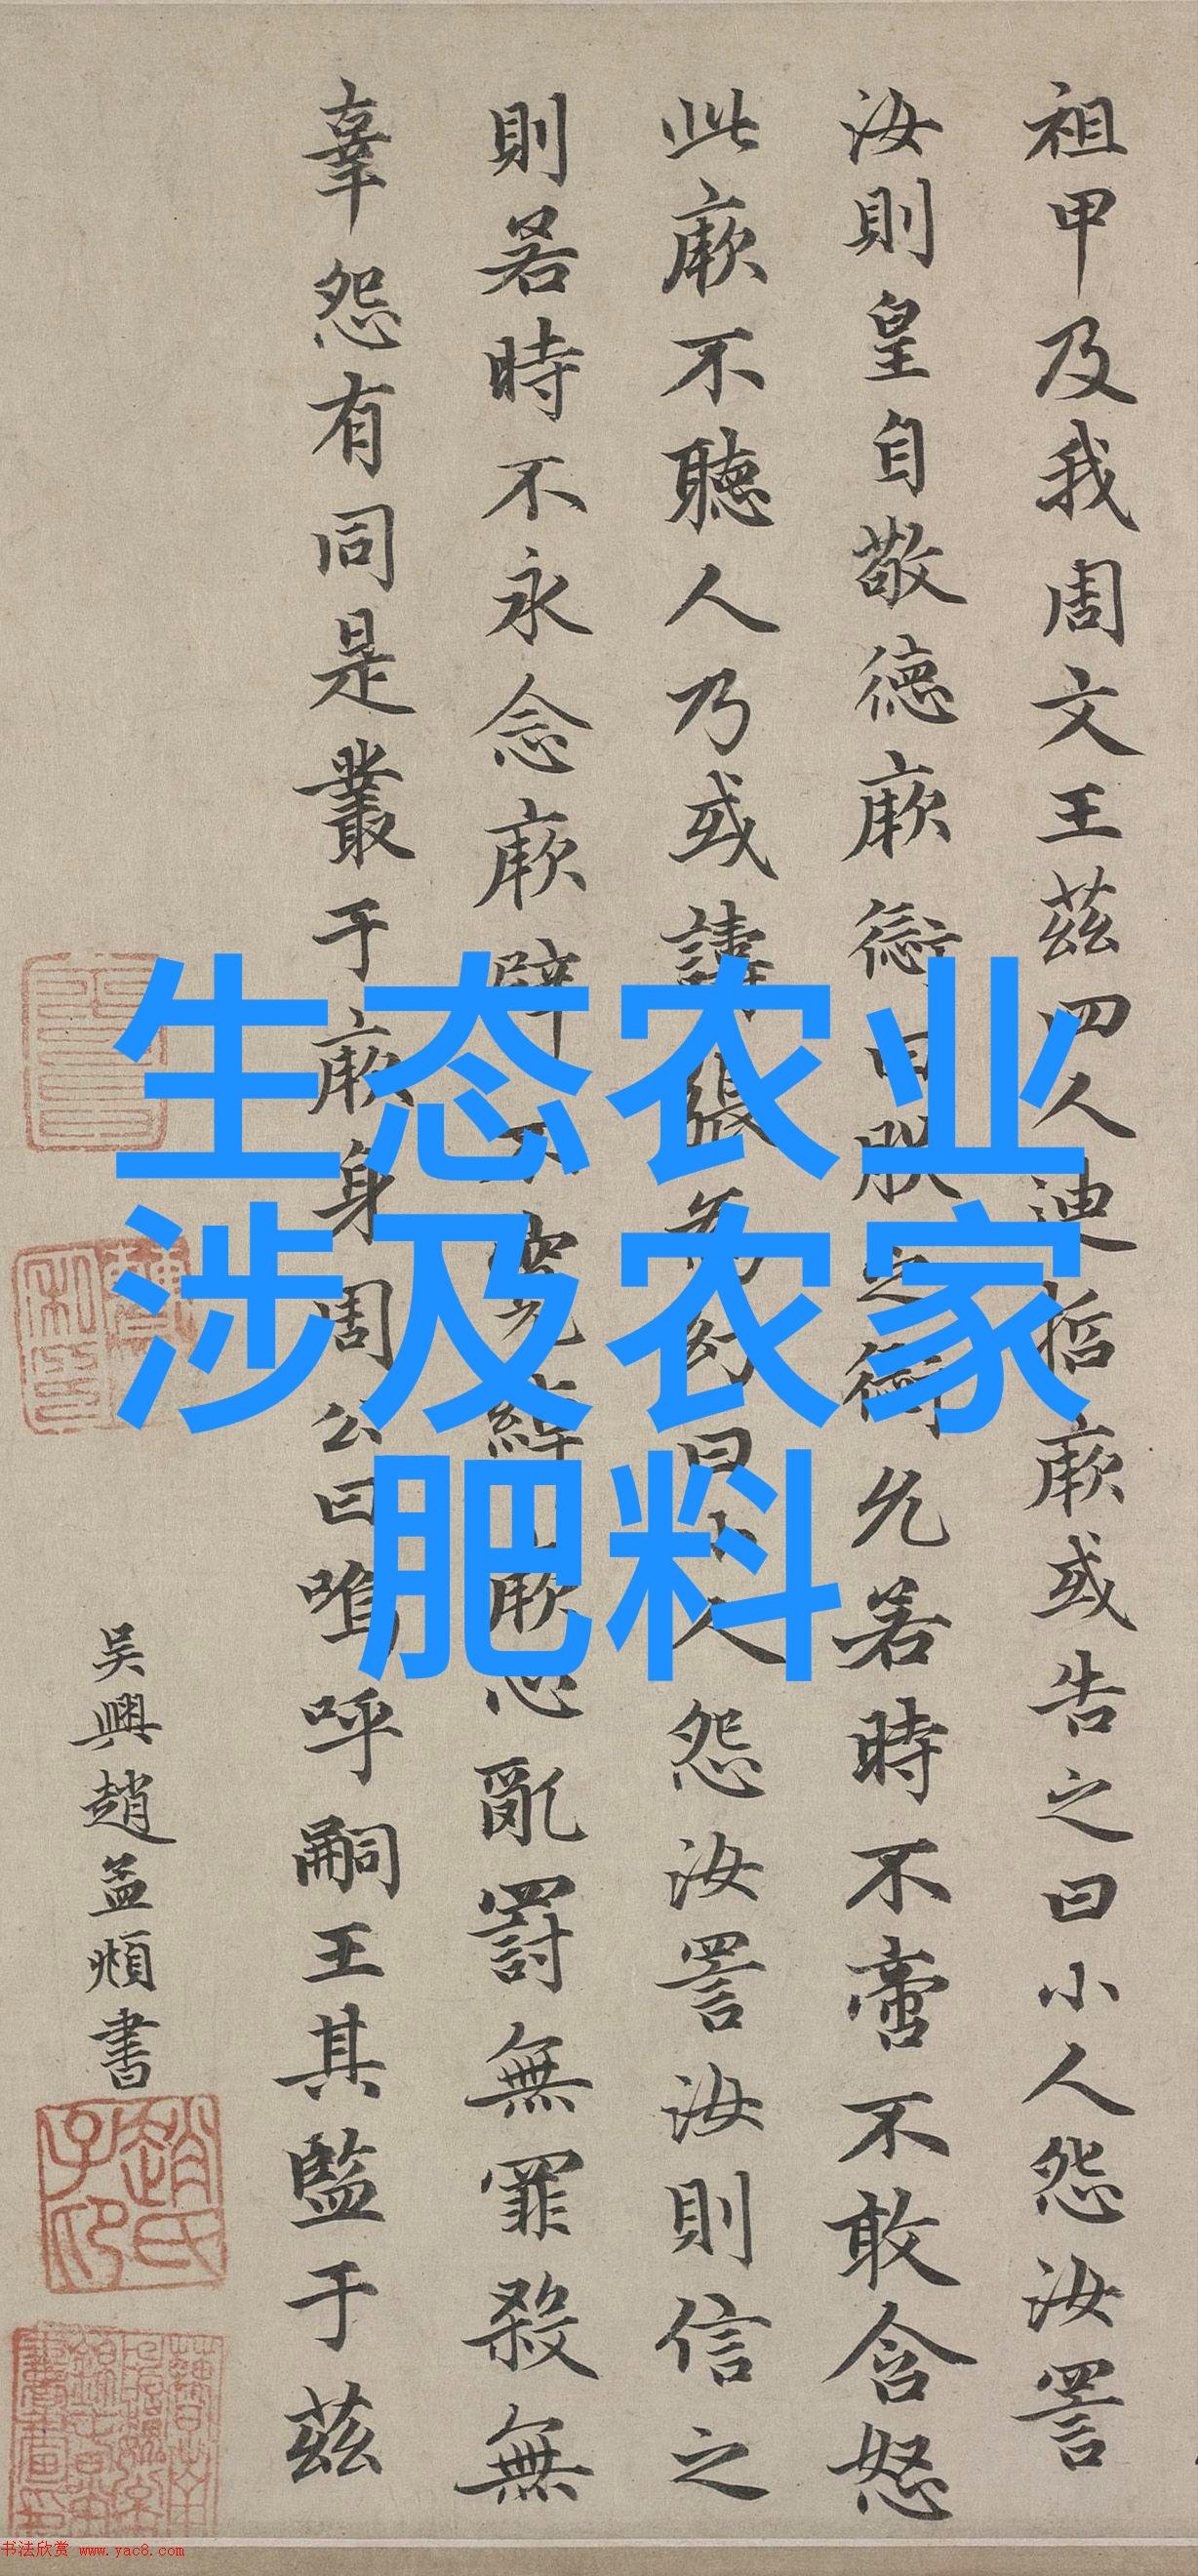 祖甲及我周文王茲四人迪哲厥或告之曰小人怨汝詈
汝則皇自敬德厥愆曰朕之愆允若時不啻不敢含怒
此厥不聽人乃或譸張為幻曰小人怨汝詈汝則信之
則若時不永念厥辟不寬綽厥心亂罰無罪殺無
辜怨有同是叢于厥身周公曰嗚呼嗣王其監于茲
吳興趙孟頫書
趙氏子昂
生态农业
涉及农家
肥料
书法欣赏 www.yac8.com